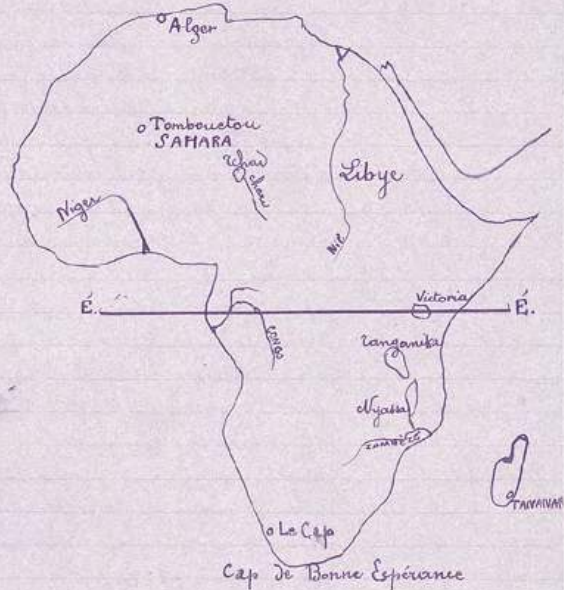 Alger
Tombouctou
SAHARA
Tchad
Chari
Libye
Niger
Nil
É. É.
Victoria
CONGO
Tanganika
Nyassa
ZAMBÈZE
TANANAR
Le Cap
Cap de Bonne Espérance